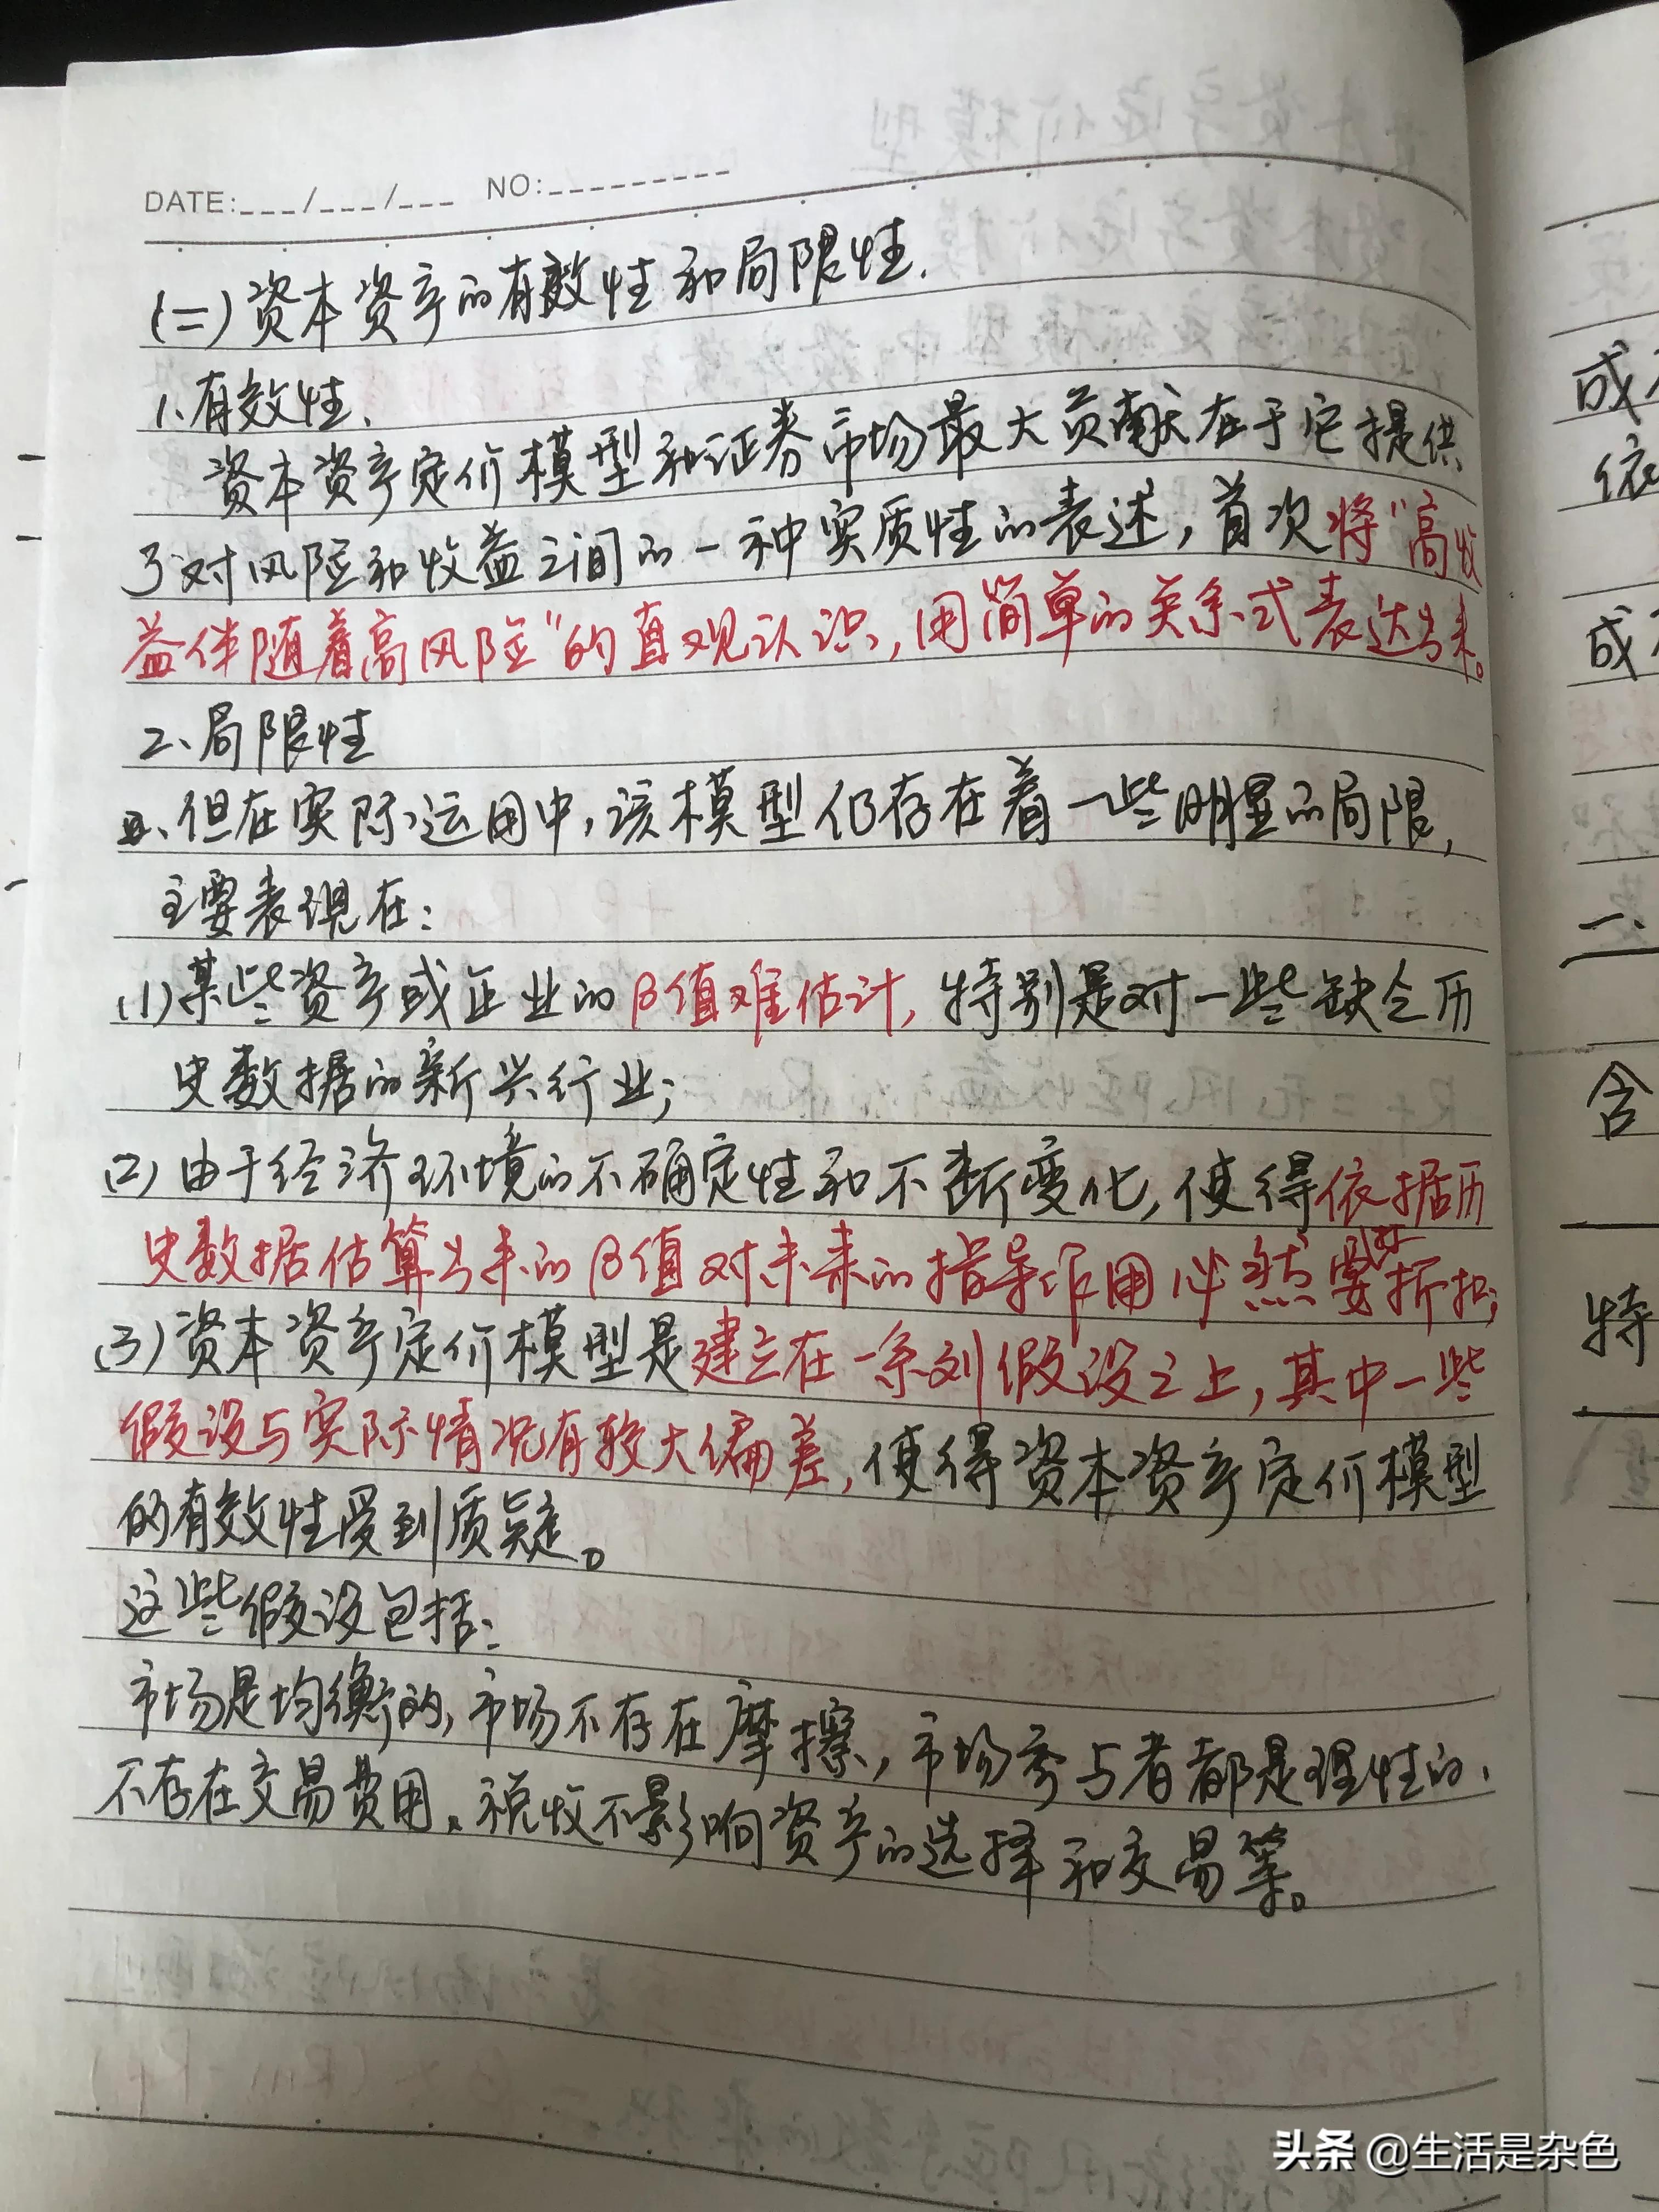 DATE:___/___/___ NO:_________
(二)资本资产的有效性和局限性.
1、有效性、
资本资产定价模型和证券市场最大贡献在于它提供
了对风险和收益之间的一种实质性的表述,首次将"高收
益伴随着高风险"的直观认识,用简单的关系式表达出来。
2、局限性
但在实际运用中,该模型仍存在着一些明显的局限,
主要表现在:
(1)某些资产或企业的β值难估计,特别是对一些缺乏历
史数据的新兴行业;
(2)由于经济环境的不确定性和不断变化,使得依据历
史数据估算出来的β值对未来的指导作用必然要打折扣;
(3)资本资产定价模型是建立在一系列假设之上,其中一些
假设与实际情况有较大偏差,使得资本资产定价模型
的有效性受到质疑。
这些假设包括:
市场是均衡的,市场不存在摩擦,市场参与者都是理性的、
不存在交易费用、税收不影响资产的选择和交易等。
成
依
成
一、
含
特
头条 @生活是杂色